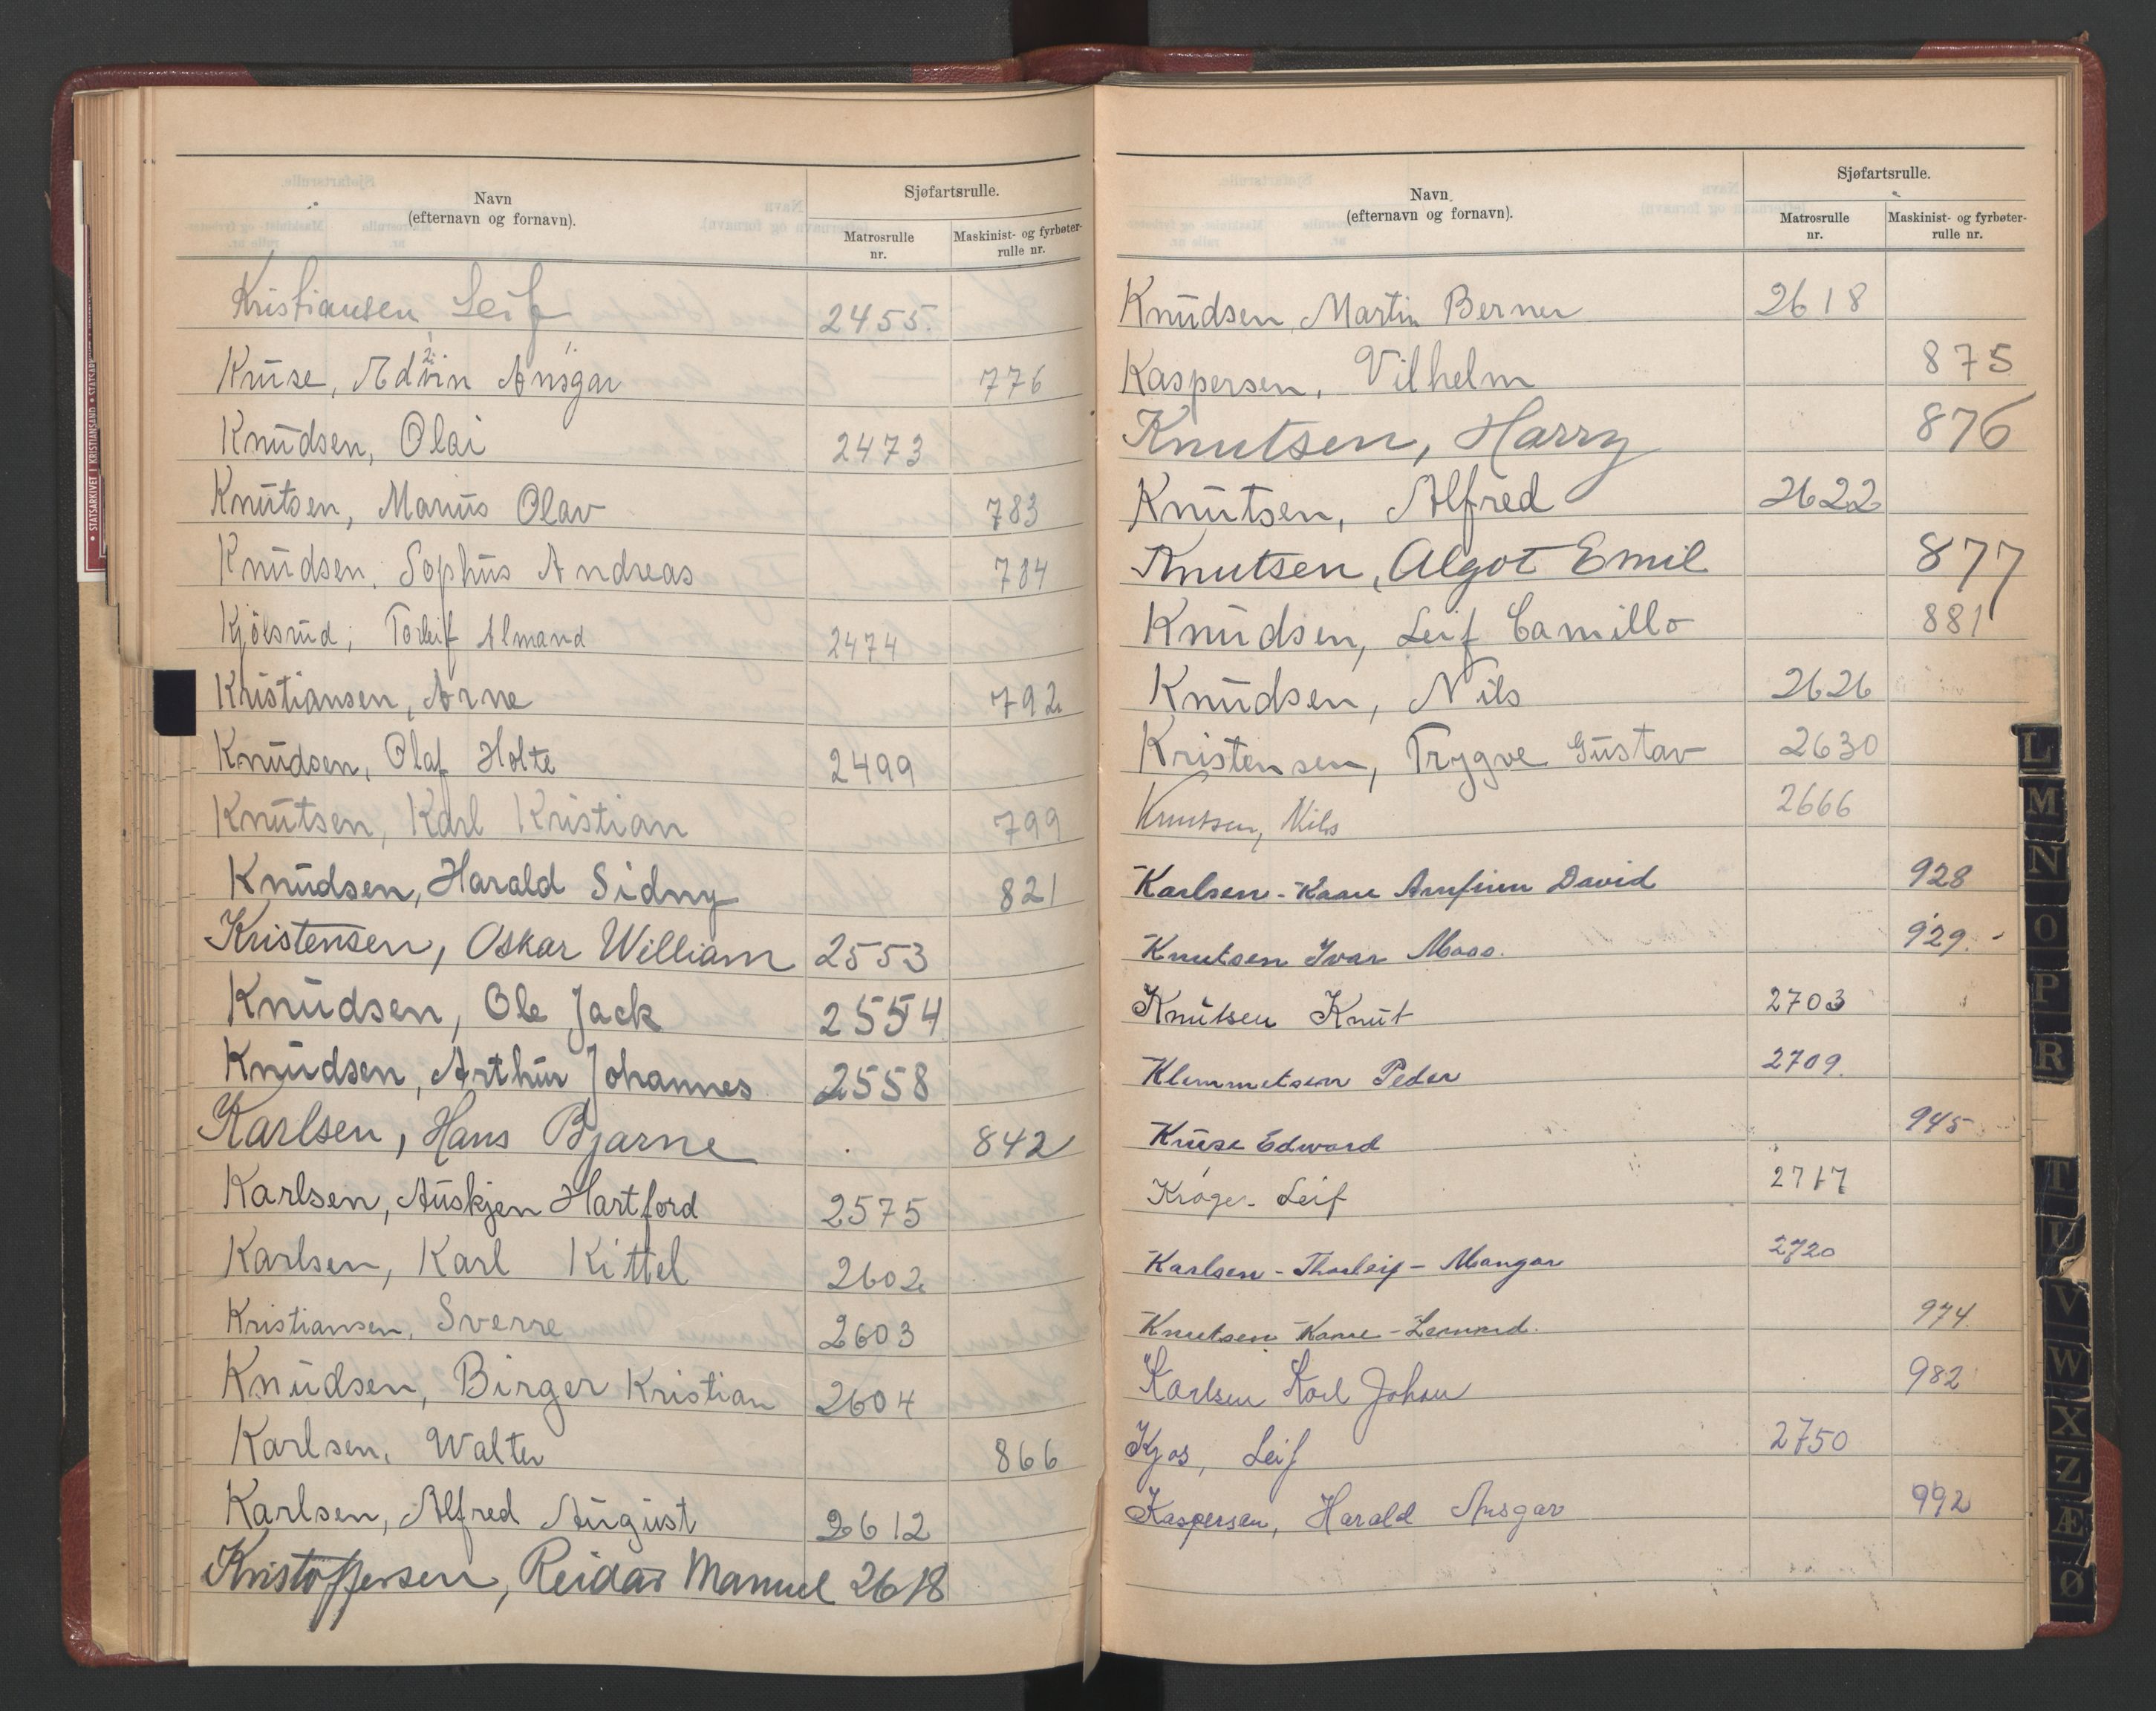 Navn
(efternavn og fornavn).
Sjøfartsrulle.
Matrosrulle nr.
Maskinist- og fyrbøter-rulle nr.
Kristiansen, Leif 2455.
Krüse, Advin Ansgar 776
Knüdsen, Olai 2473
Knütsen, Marius Olav 783
Knüdsen, Sophüs Andreas 784
Kjölsrüd, Torleif Almand 2474
Kristiansen, Arne 792
Knüdsen, Olaf Holte 2499
Knütsen, Karl Kristian 799
Knüdsen, Harald Sidny 821
Kristensen, Oskar William 2553
Knüdsen, Ole Jack 2554
Knüdsen, Arthür Johannes 2558
Karlsen, Hans Bjarne 842
Karlsen, Aüskjen Hartford 2575
Karlsen, Karl Kittel 2602
Kristiansen, Sverre 2603
Knüdsen, Birger Kristian 2604
Karlsen, Walter 866
Karlsen, Alfred Aügüst 2612
Kristoffersen, Reidar Manuel 2618
Navn
(efternavn og fornavn).
Sjøfartsrulle.
Matrosrulle nr.
Maskinist- og fyrbøter-rulle nr.
Knüdsen, Martin Berner 2618
Kaspersen, Vilhelm 875
Knutsen, Harry 876
Knütsen, Alfred 2622
Knutsen, Algot Emil 877
Knüdsen, Leif Camillo 881
Knüdsen, Nils 2626
Kristensen, Trygve Güstav 2630
Knutsen, Nils 2666
Karlsen - Kaare Arnfinn David 928
Knutsen Ivar Maas. 929.
Knütsen Knüt 2703
Klemmetsen Peder 2709.
Krüse Edward 945
Krøger Leif 2717
Karlsen - Thorleif - Mangar 2720
Knutsen Kaare - Leonard. 974
Karlsen Karl Johan 982
Kjos, Leif 2750
Kaspersen, Harald Ansgar 992
L
M
N
O
P
R
T
U
V
W
X
Z
Æ
Ø
• STATSARKIVET I KRISTIANSAND •